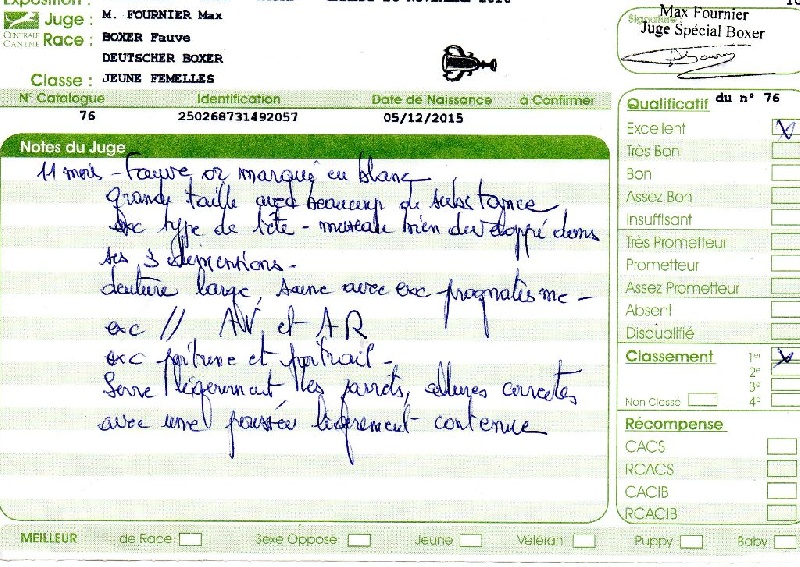 Juge : M. FOURNIER Max
CENTRALE CANINE
Race : BOXER Fauve
DEUTSCHER BOXER
Classe : JEUNE FEMELLES
Max Fournier
Juge Spécial Boxer
N° Catalogue Identification Date de Naissance à Confirmer
76 250268731492057 05/12/2015
Notes du Juge
11 mois - Fauve or marqué en blanc
grande taille avec beaucoup de substance
exc type de tête - museau bien développé dans
ses 3 dimentions -
denture large, saine avec exc prognatisme -
exc // AV et AR
exc poitrine et poitrail -
Serre légèrement les jarrets, allures correctes
avec une poussée légèrement contenue
Qualificatif du n° 76
Excellent X
Très Bon
Bon
Assez Bon
Insuffisant
Très Prometteur
Prometteur
Assez Prometteur
Absent
Disqualifié
Classement 1er X
2e
3e
Non Classé 4e
Récompense
CACS
RCACS
CACIB
RCACIB
MEILLEUR de Race Sexe Opposé Jeune Vétéran Puppy Baby